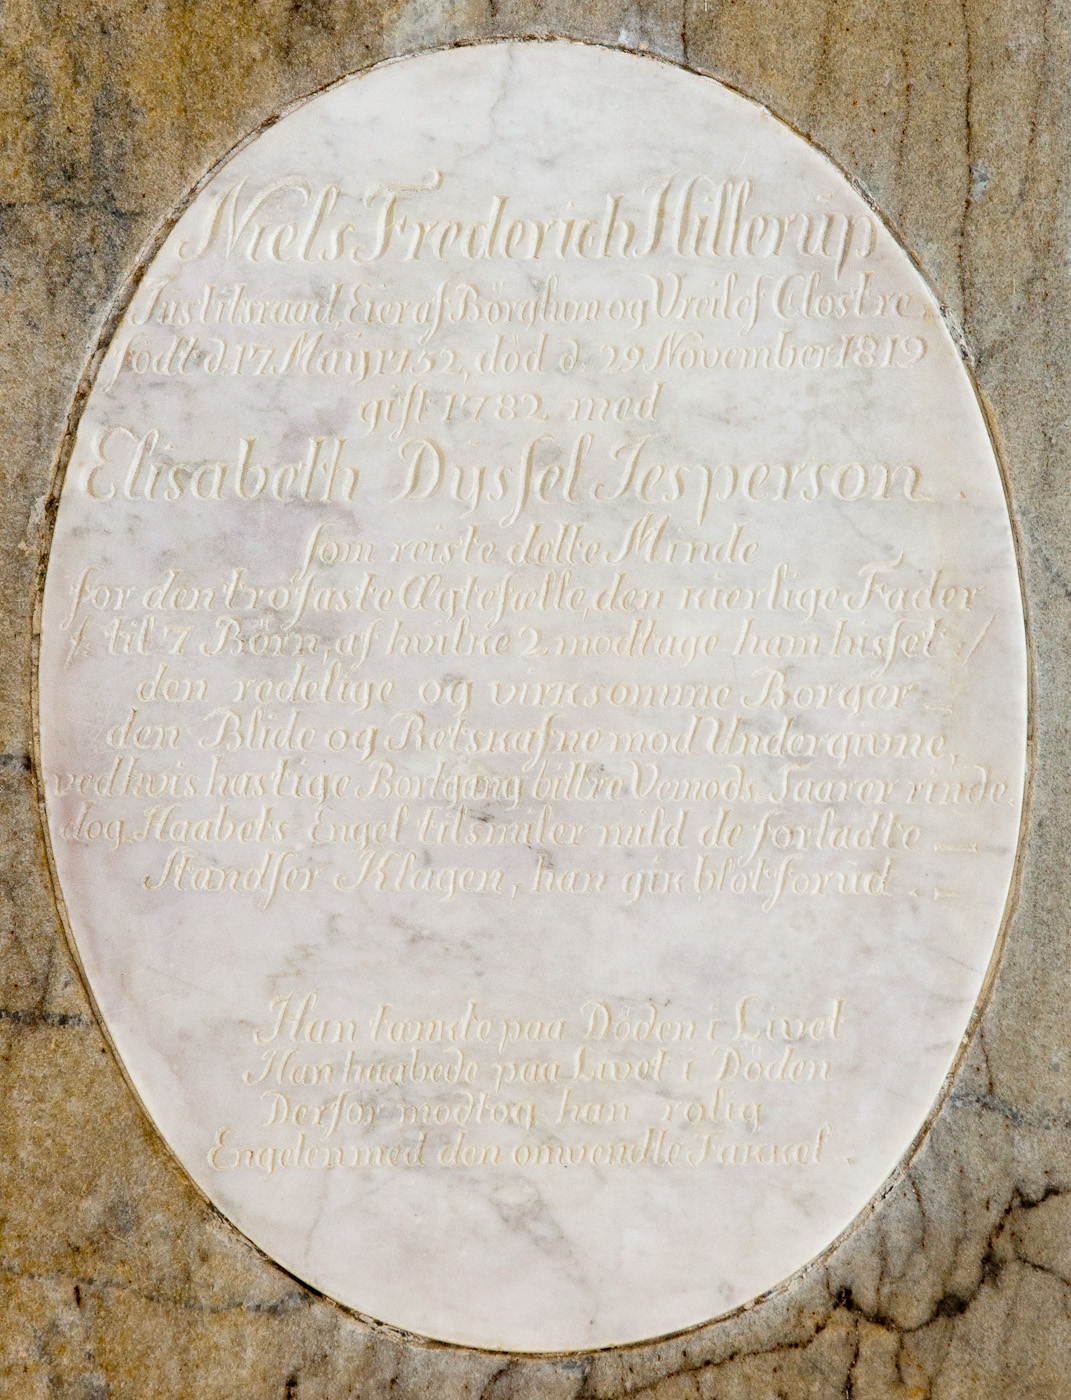 Niels Frederich Hillerup
Justitsraad, Eier af Börglum og Vreilef Clostre.
födt d. 17 Maij 1752, död d. 29 November 1819
gift 1782. med
Elisabeth Dysſel Jesperson.
ſom reiste dette Minde
for den trofaste Ægtefælle, den kierlige Fader
/: til 7 Börn, af hvilke 2 modtage ham hisſet :/
den redelige og virksomme Borger
den Blide og Retskafne mod Undergivne,
ved hvis hastige Bortgang bittre Vemods Taarer rinde.
dog Haabets Engel tilsmiler mild de forladte
Standſer Klagen, han gik blot forud.
Han tænkte paa Döden i Livet
Han haabede paa Livet i Döden
Derfor modtog han rolig
Engelen med den omvendte Fakkel.